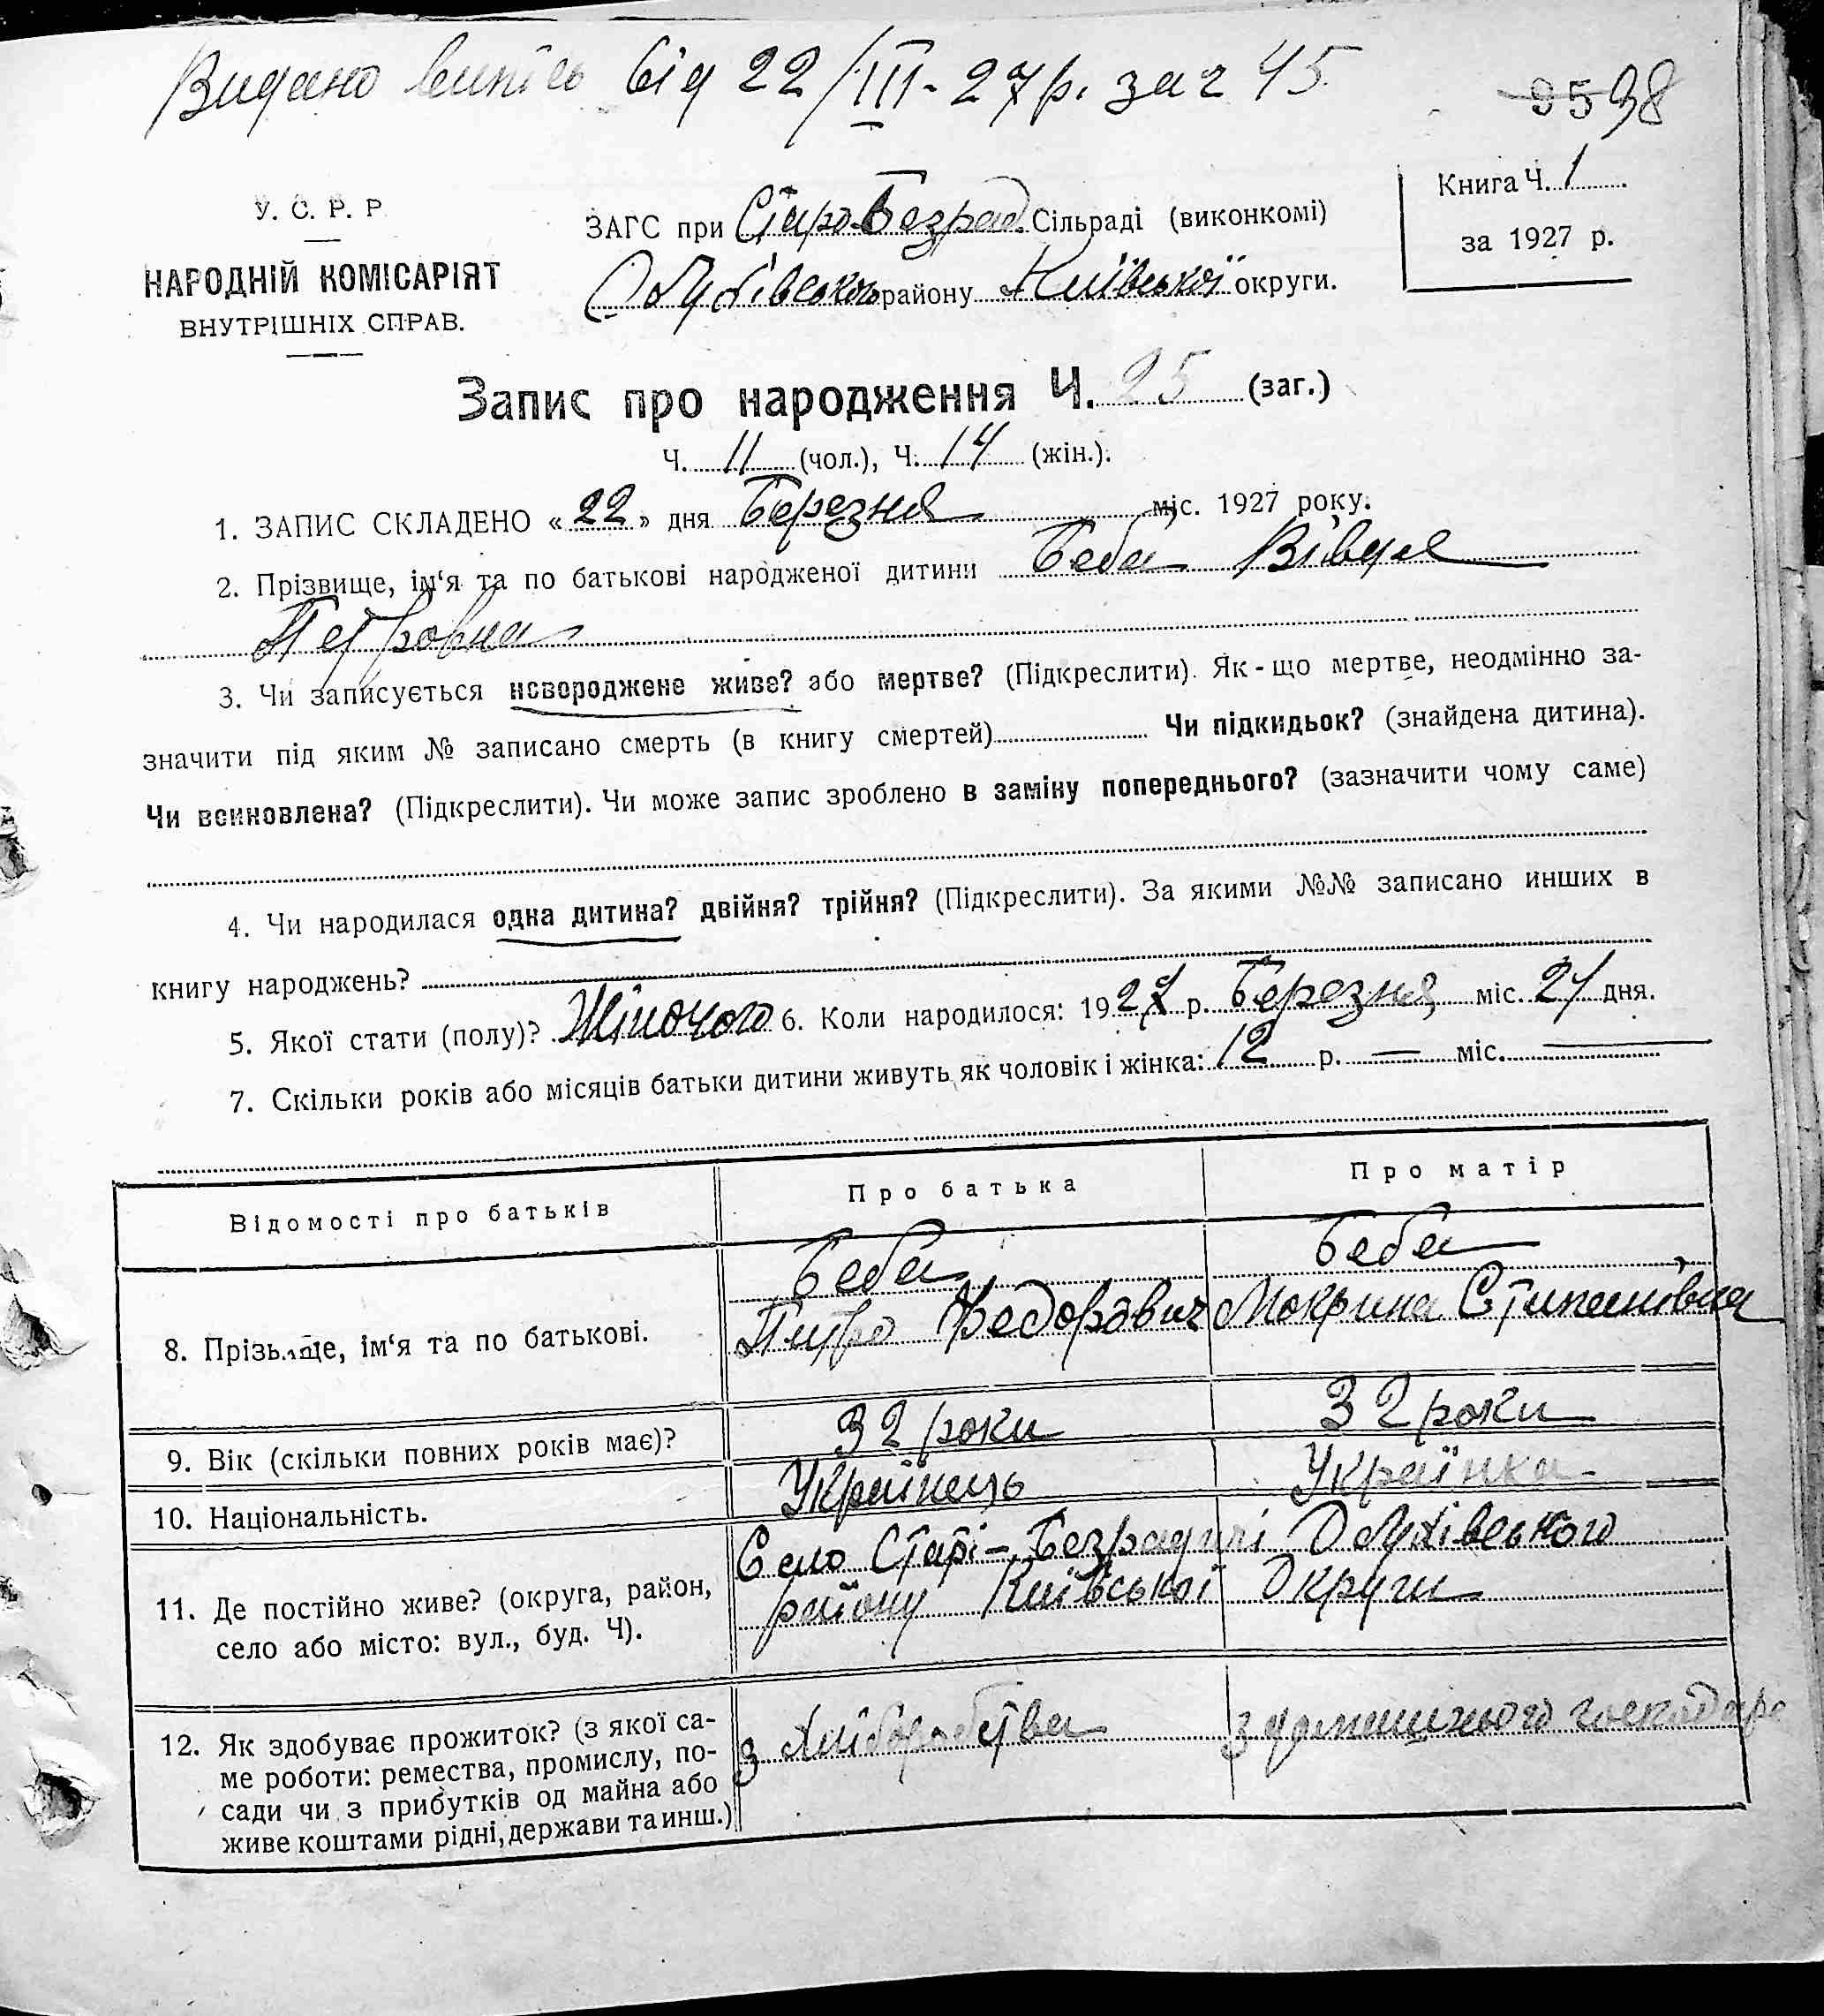 Видано випис від 22/III-27р. за ч 45.
95 98
У. С. Р. Р
НАРОДНІЙ КОМІСАРІЯТ
ВНУТРІШНІХ СПРАВ.
ЗАГС при Старо-Безрад. Сільраді (виконкомі)
Обухівського району Київської округи.
Книга Ч. 1
за 1927 р.
Запис про народження Ч. 25 (заг.)
Ч. 11 (чол.), Ч. 14 (жін.).
1. ЗАПИС СКЛАДЕНО «22» дня Березня міс. 1927 року.
2. Прізвище, ім'я та по батькові народженої дитини Беба Вівдя
Петровна
3. Чи записується новороджене живе? або мертве? (Підкреслити). Як-що мертве, неодмінно за-
значити під яким № записано смерть (в книгу смертей) Чи підкидьок? (знайдена дитина).
Чи всиновлена? (Підкреслити). Чи може запис зроблено в заміну попереднього? (зазначити чому саме)
4. Чи народилася одна дитина? двійня? трійня? (Підкреслити). За якими №№ записано инших в
книгу народжень?
5. Якої стати (полу)? Жіночого 6. Коли народилося: 1927 р. Березня міс. 21 дня.
7. Скільки років або місяців батьки дитини живуть як чоловік і жінка: 12 р. — міс. —
Відомості про батьків Про батька Про матір
Беба Беба
8. Прізвище, ім'я та по батькові. Питро Федорович Мокрина Стипанівна
9. Вік (скільки повних років має)? 32 роки 32 роки
10. Національність. Українець Українка
Село Старі-Безрадичі Обухівського
району Київської Округи
11. Де постійно живе? (округа, район,
село або місто: вул., буд. Ч).
12. Як здобуває прожиток? (з якої са-
ме роботи: ремества, промислу, по-
сади чи з прибутків од майна або
живе коштами рідні, держави та инш.)
з хліборобства з домашнього господар